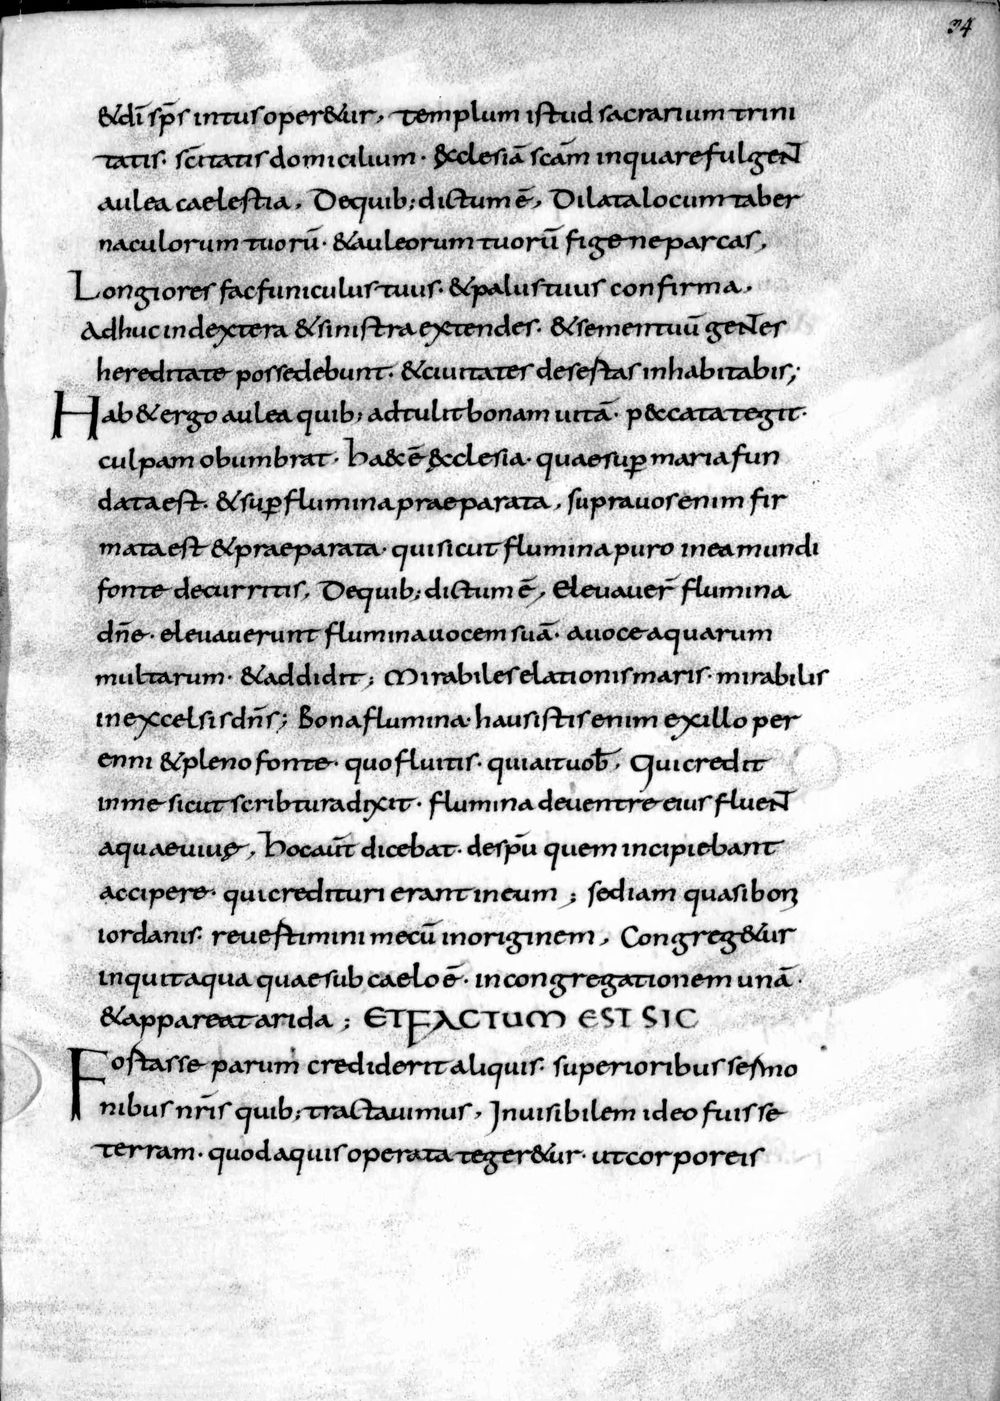 34
&di sp̄s intus oper&ur, templum istud sacrarium trini
tatis· sc̄itatis domicilium· &cclesiā scām inqua refulgent
aulea caelestia, Dequib; dictum ē, Dilata locum taber
naculorum tuorū· &auleorum tuorū fige ne parcas,
Longiores fac funiculus tuus· &palus tuus confirma,
Adhuc indextera &sinistra extendes· &semen tuū gentes
hereditate possedebunt· &ciuitates desestas inhabitabis;
Hab& ergo aulea quib; adtulit bonam uitā· p&ccata tegit·
culpam obumbrat· ha&c ē &cclesia· quae sup maria fun
data est· &sup flumina praeparata, supra uos enim fir
mata est &praeparata· qui sicut flumina puro inea mundi
fonte decurritis, Dequib; dictum ē, Eleuauer̄ flumina
dn̄e· eleuauerunt flumina uocem suā· auoce aquarum
multarum· &addidit; Mirabiles elationis maris· mirabilis
inexcelsis dn̄s; Bona flumina· hausistis enim exillo per
enni &pleno fonte· quo fluitis· qui ait uob̄, Qui credit
inme sicut scribtura dixit· flumina deuentre eius fluent
aquae uiuę, hoc aūt dicebat· de sp̄u quem incipiebant
accipere· qui credituri erant ineum; sed iam quasi boꝝ
iordanis· reuestimini mecū inoriginem, Congreg&ur
inquit aqua quae sub caelo ē· incongregationem unā·
&appareat arida; ET FACTUM EST SIC
Fostasse parum crediderit aliquis· superioribus sermo
nibus nr̄is quib; tractauimus, Inuisibilem ideo fuisse
terram· quod aquis operata teger&ur· ut corporeis